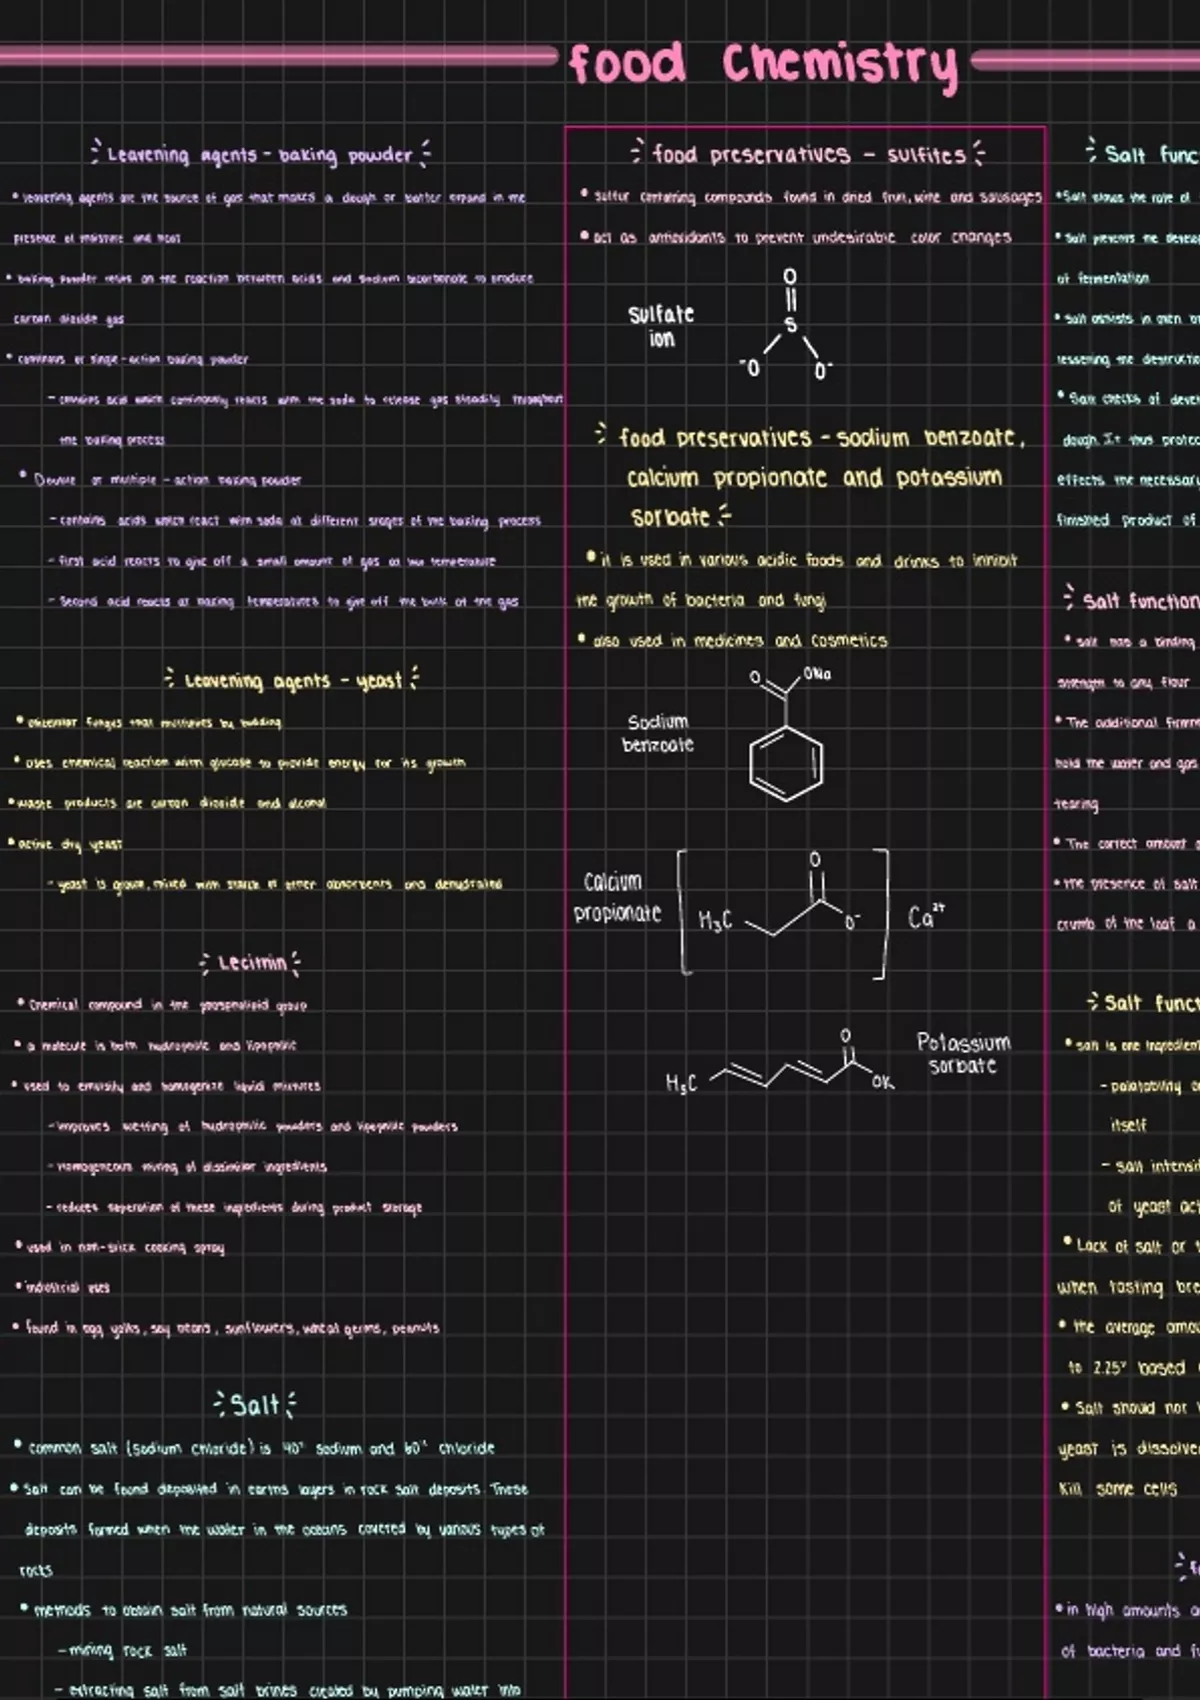 food Chemistry
Leavening agents - baking powder
• leavening agents are the source of gas that makes a dough or batter expand in the
presence of moisture and heat
• baking powder relies on the reaction between acids and sodium bicarbonate to produce
carbon dioxide gas
• continous or single-action baking powder
- contains acid which continously reacts with the soda to release gas steadily throughout
the baking process
• Double or multiple-action baking powder
- contains acids which react with soda at different stages of the baking process
- first acid reacts to give off a small amount of gas at low temperature
- Second acid reacts at baking temperatures to give off the bulk of the gas
Leavening agents - yeast
• unicellular fungus that multiplies by budding
• uses chemical reaction with glucose to provide energy for its growth
• waste products are carbon dioxide and alcohol
• active dry yeast
- yeast is grown, mixed with starch or other absorbents and dehydrated
Lecithin
• Chemical compound in the phospholipid group
• a molecule is both hydrophilic and lipophilic
• used to emulsify and homogenize liquid mixtures
- improves wetting of hydrophilic powders and lipophilic powders
- homogeneous mixing of dissimilar ingredients
- reduces seperation of these ingredients during product storage
• used in non-stick cooking spray
• industrial uses
• found in egg yolks, soy beans, sunflowers, wheat germs, peanuts
Salt
• common salt (sodium chloride) is 40% sodium and 60% chloride
• Salt can be found deposited in earths layers in rock salt deposits. These
deposits formed when the water in the oceans covered by various types of
rocks
• methods to obtain salt from natural sources
- mining rock salt
- extracting salt from salt brines created by pumping water into
food preservatives - sulfites
• sulfur containing compounds found in dried fruit, wine and sausages
• act as antioxidants to prevent undesirable color changes
O
sulfate
ion
S
⁻O O⁻
food preservatives - sodium benzoate,
calcium propionate and potassium
sorbate
• it is used in various acidic foods and drinks to inhibit
the growth of bacteria and fungi
• also used in medicines and cosmetics
O ONa
Sodium
benzoate
O
Calcium
propionate
H₃C O⁻ Ca²⁺
O
Potassium
sorbate
H₃C OK
Salt func
• Salt slows the rate of
• Salt prevents the develo
of fermentation
• Salt assists in oven
lessening the destructio
• Salt checks of deve
dough. It thus protec
effects the necessary
finished product of
Salt function
• salt has a binding
strength to any flour
• The additional firmn
hold the water and gas
tearing
• The correct amount
• the presence of salt
crumb of the loaf a
Salt funct
• salt is one ingredient
- palatability
itself
- salt intensi
of yeast act
• Lack of salt or
when tasting bre
• the average amou
to 2.25% based
• Salt should not
yeast is dissolve
kill some cells
f
• in high amounts
of bacteria and fu